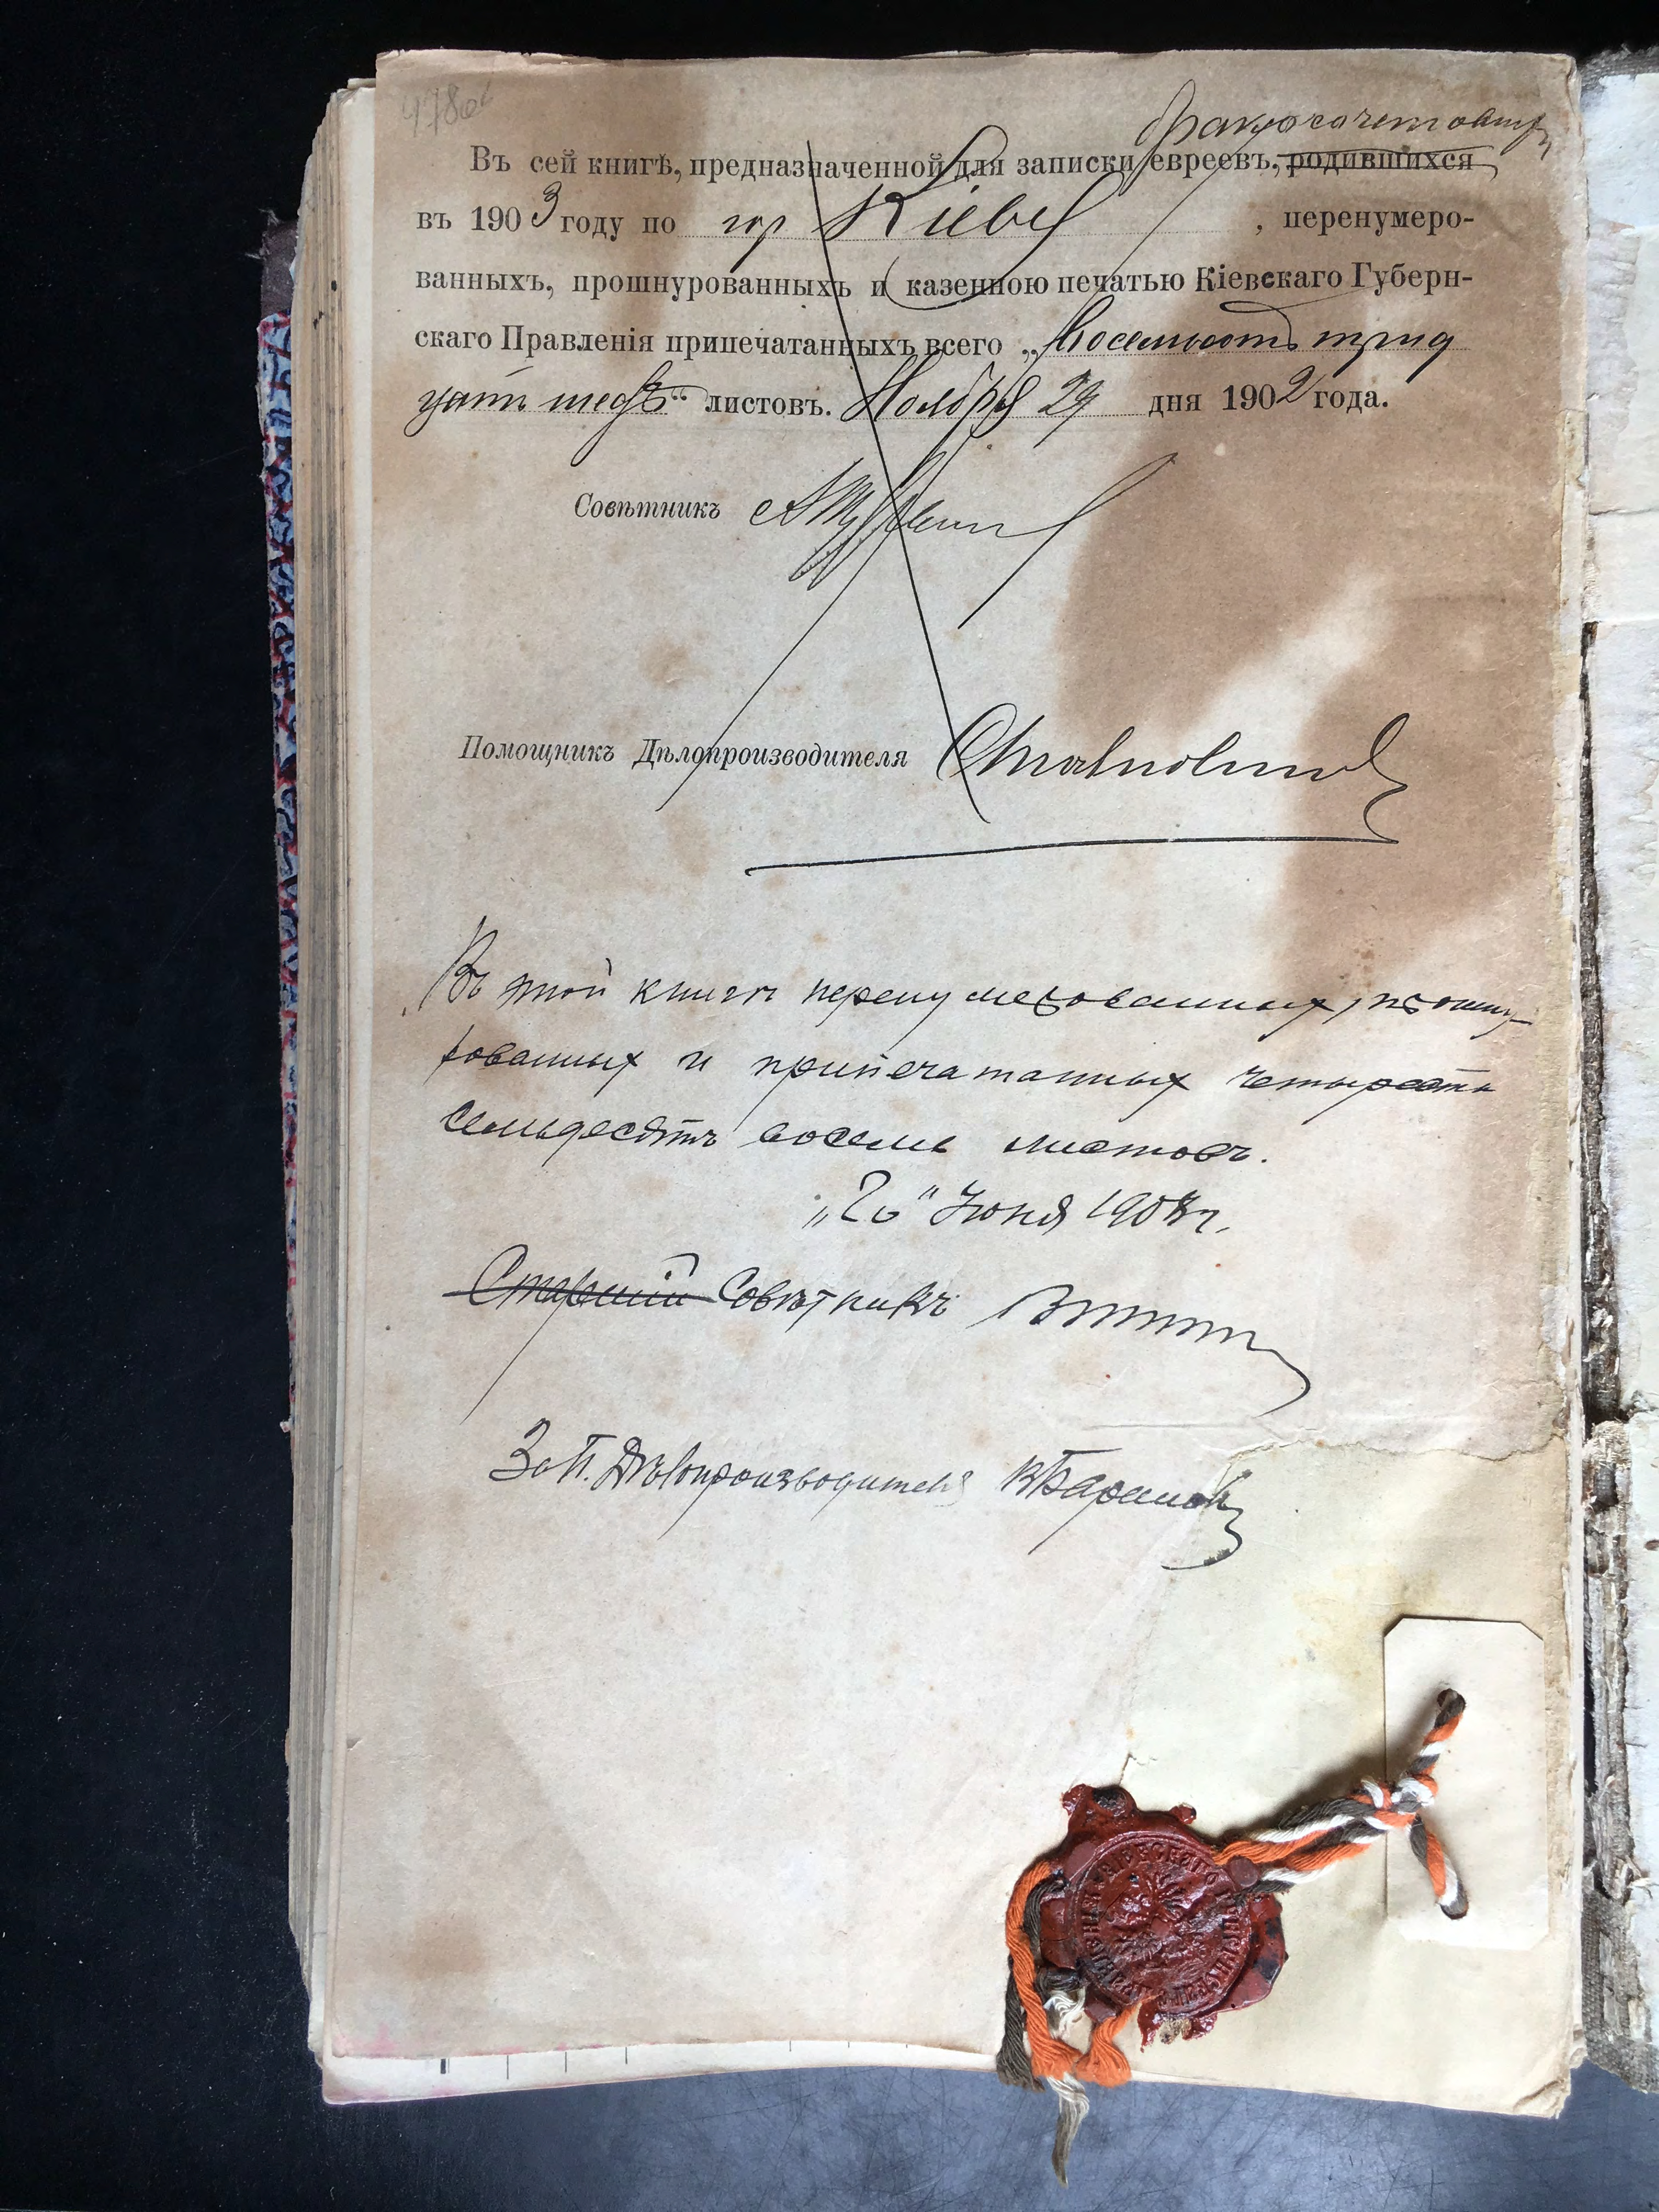 478об
бракосочетавш
Въ сей книгѣ, предназначенной для записки евреевъ, родившихся
въ 1903 году по гор Кіеву, перенумеро-
ванныхъ, прошнурованныхъ и казенною печатью Кіевскаго Губерн-
скаго Правленія припечатанныхъ всего „Восемьсотъ трид
цать
“ листовъ. Ноября 29 дня 1902 года.
Совѣтникъ
Помощникъ Дѣлопроизводителя
Въ этой книгѣ перенумерованных, прошну-
рованных и припечатанных четыреста
семьдесятъ восемь листовъ.
Іюня 1903 г.
Старшій Совѣтникъ
За П. Дѣлопроизводителя